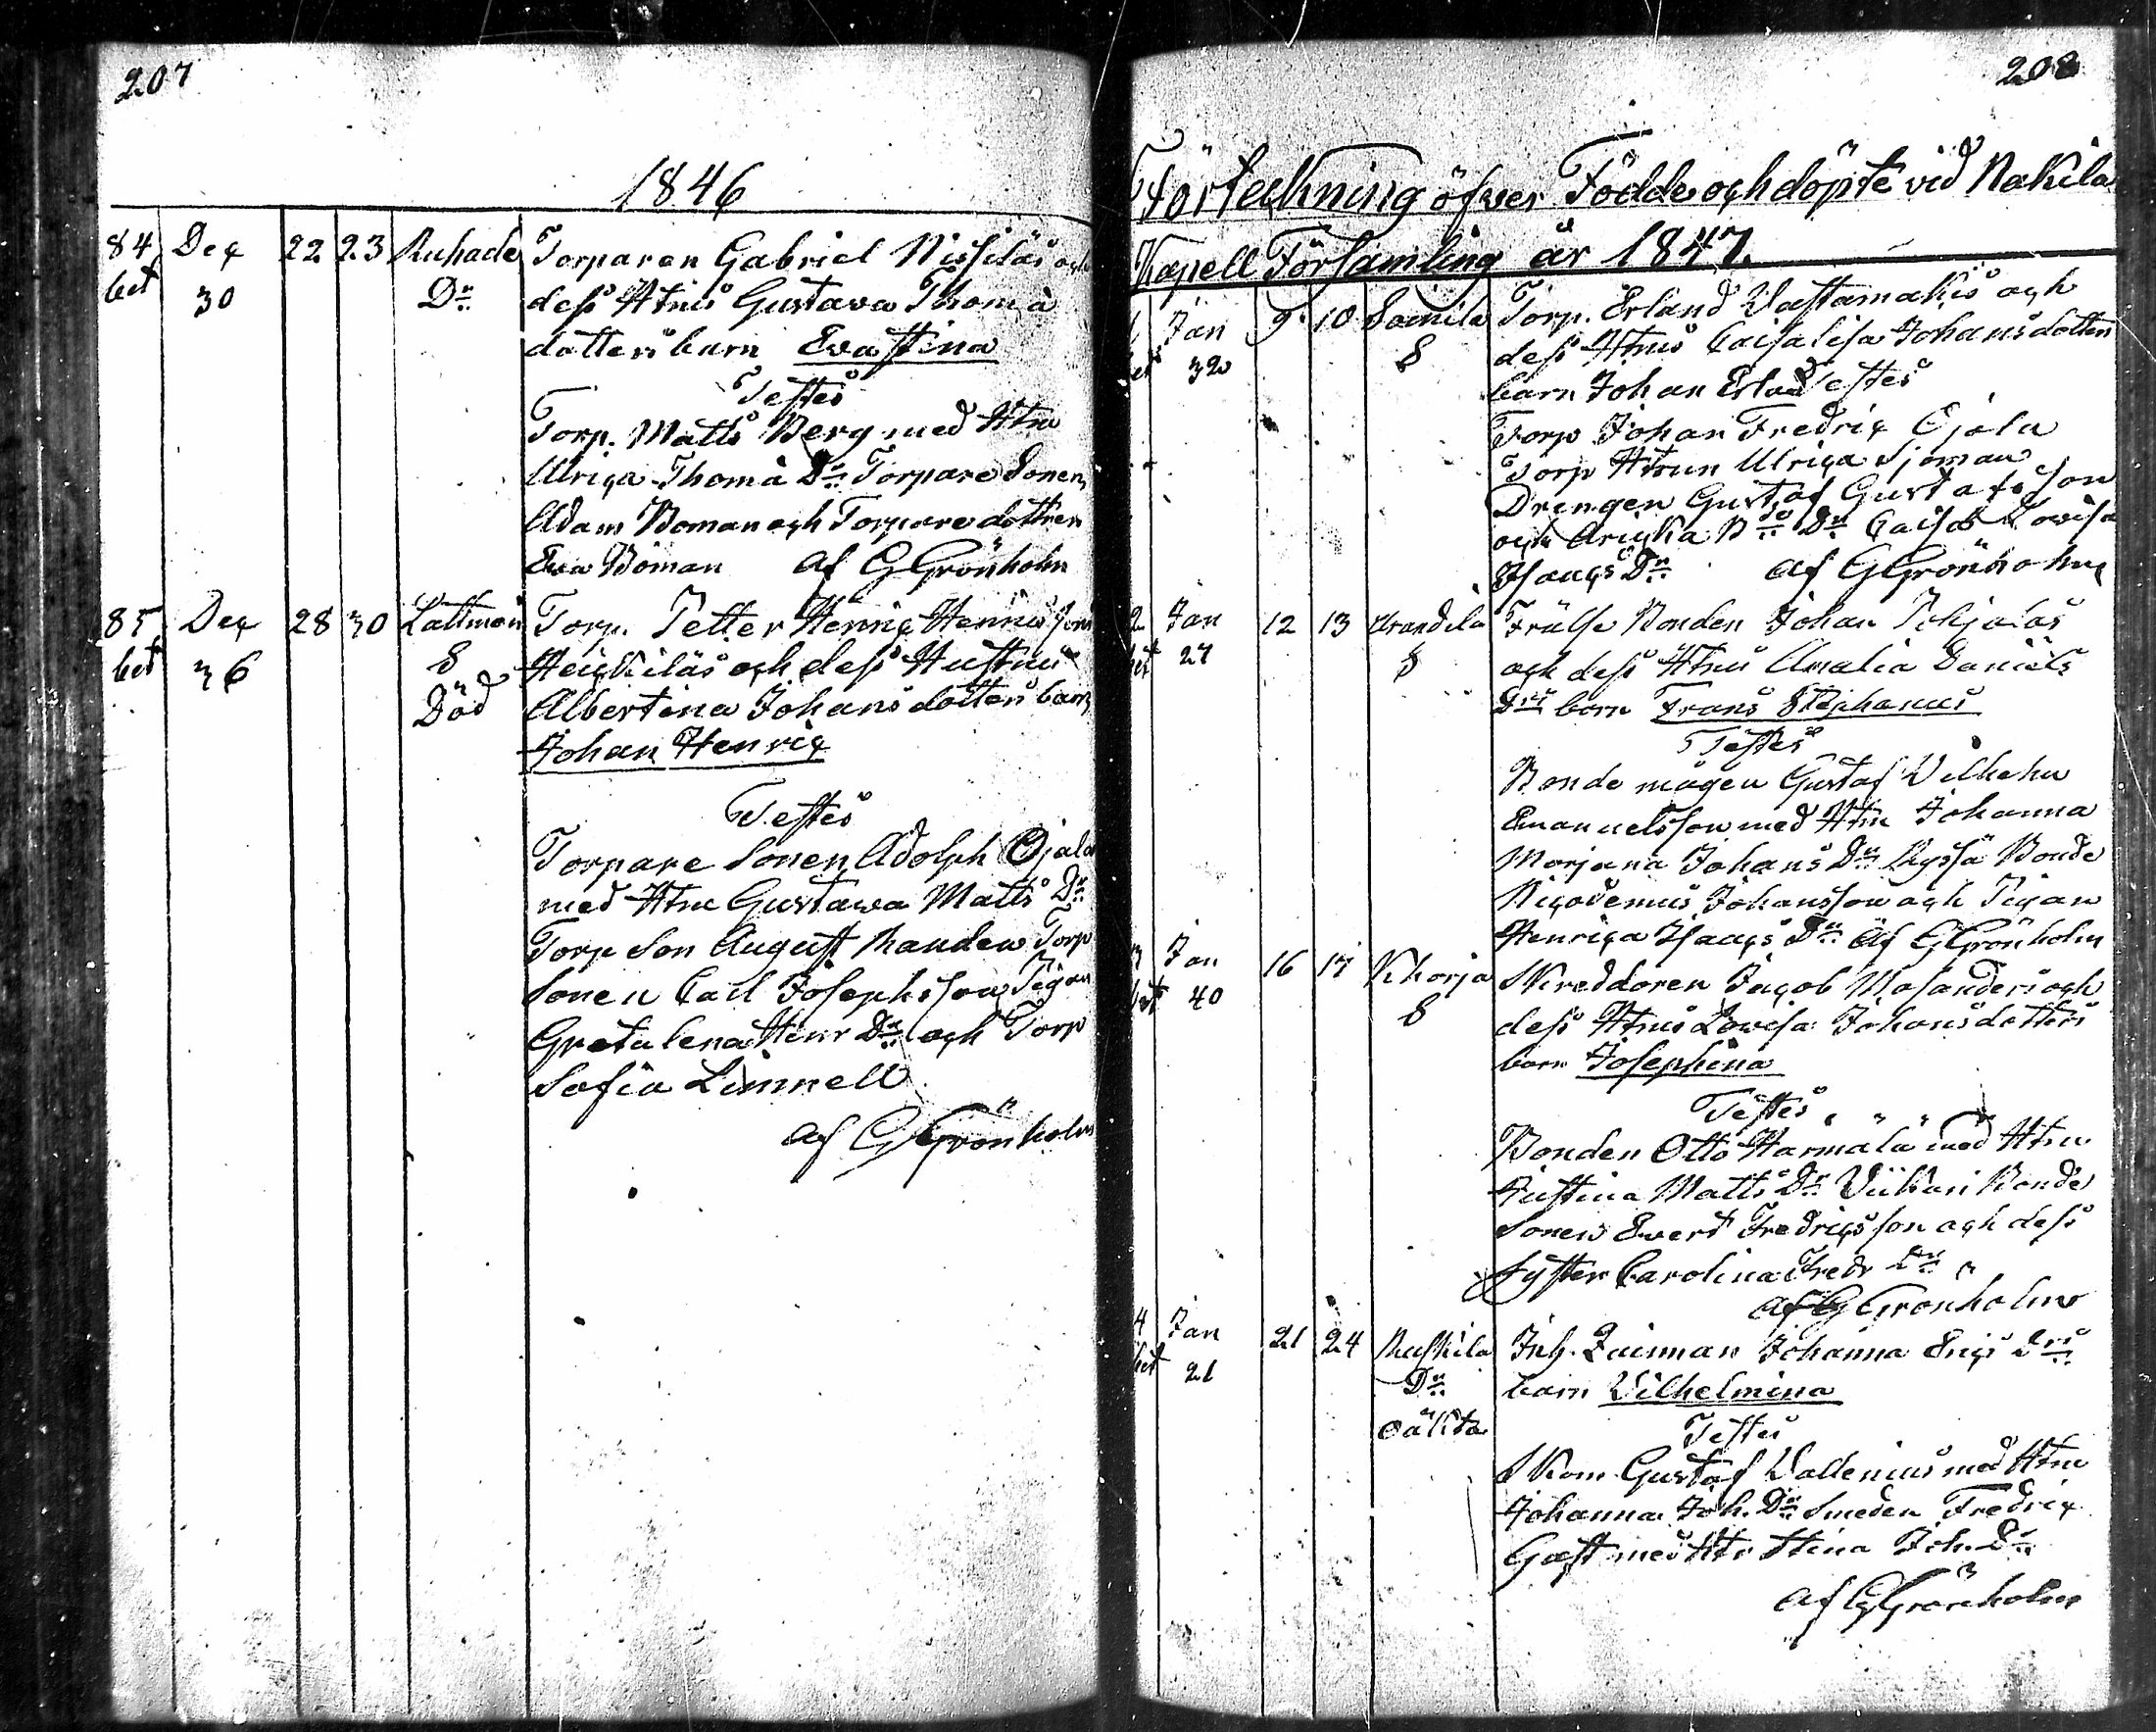 207
1846
84 Dec 22 23 Ruhade Torparen Gabriel Nissiläs och
bet 30 Dr dess Hтrus Gustava Thomä
dotters barn Eva Stina
Testes
Torp. Matts Berg med Htru
Ulrica Thomä Dr Torpare Sonen
Adam Boman och Torpare dottren
Eva Boman af G Grönholm
85 Dec 28 30 Lattmon Torp. Petter Henric Henricssons
bet 36 S Heickiläs och dess Hustrus
Död Albertina Johans dotters barn
Johan Henric
Testes
Torpare Sonen Adolph Ojala
med Htru Gustawa Matts Dr
Torp Son August Randen Torp
Sonen Carl Josephsson Pigan
Greta lena Henr Dr och Torp
Sofia Linnell
af G Grönholm
208
Förteckning öfver Födde och döpte vid Nakila
Kapell Församling år 1847.
1 Jan 9 10 Soinila Torp. Erland Wastamakis och
bet 32 S dess Htrus Caisa lisa Johansdotters
barn Johan Erland Testes
Torp Johan Fredric Ojala
Torp Htrun Ulrica Sjöman
Drengen Gustaf Gustafsson
och Dr Caisa Lovisa
Isaacs Dr af G Grönholm
2 Jan 12 13 Arandila Frälse Bonden Johan Pohjalas
bet 27 S och dess Htrus Amalia Daniels
Drs barn Frans Stephanus
Testes
Bonde mågen Gustaf Vilhelm
Emanuelsson med Htru Johanna
Marjana Johans Dr Bonde
Nicodemus Johansson och Pigan
Henrica Isaacs Dr af G Grönholm
3 Jan 16 17 Wiikorja Skreddaren Jacob Mosanders och
bet 40 S dess Htrus Lovisa Johansdotters
barn Josephina
Testes
Bonden Otto Harmälä med Htru
Justina Matts Dr Viikari Bonde
Sonen Evert Fredricsson och dess
Syster Carolina Fredr Dr
af G Grönholm
4 Jan 21 24 Ruskila Inh. Qvinnan Johanna Erics Drs
bet 21 Dr barn Vilhelmina
oäkta Testes
Skom Gustaf Vallenius med Htru
Johanna Joh. Dr Smeden Fredric
Gäst med Htr Stina Joh. Dr
af G Grönholm